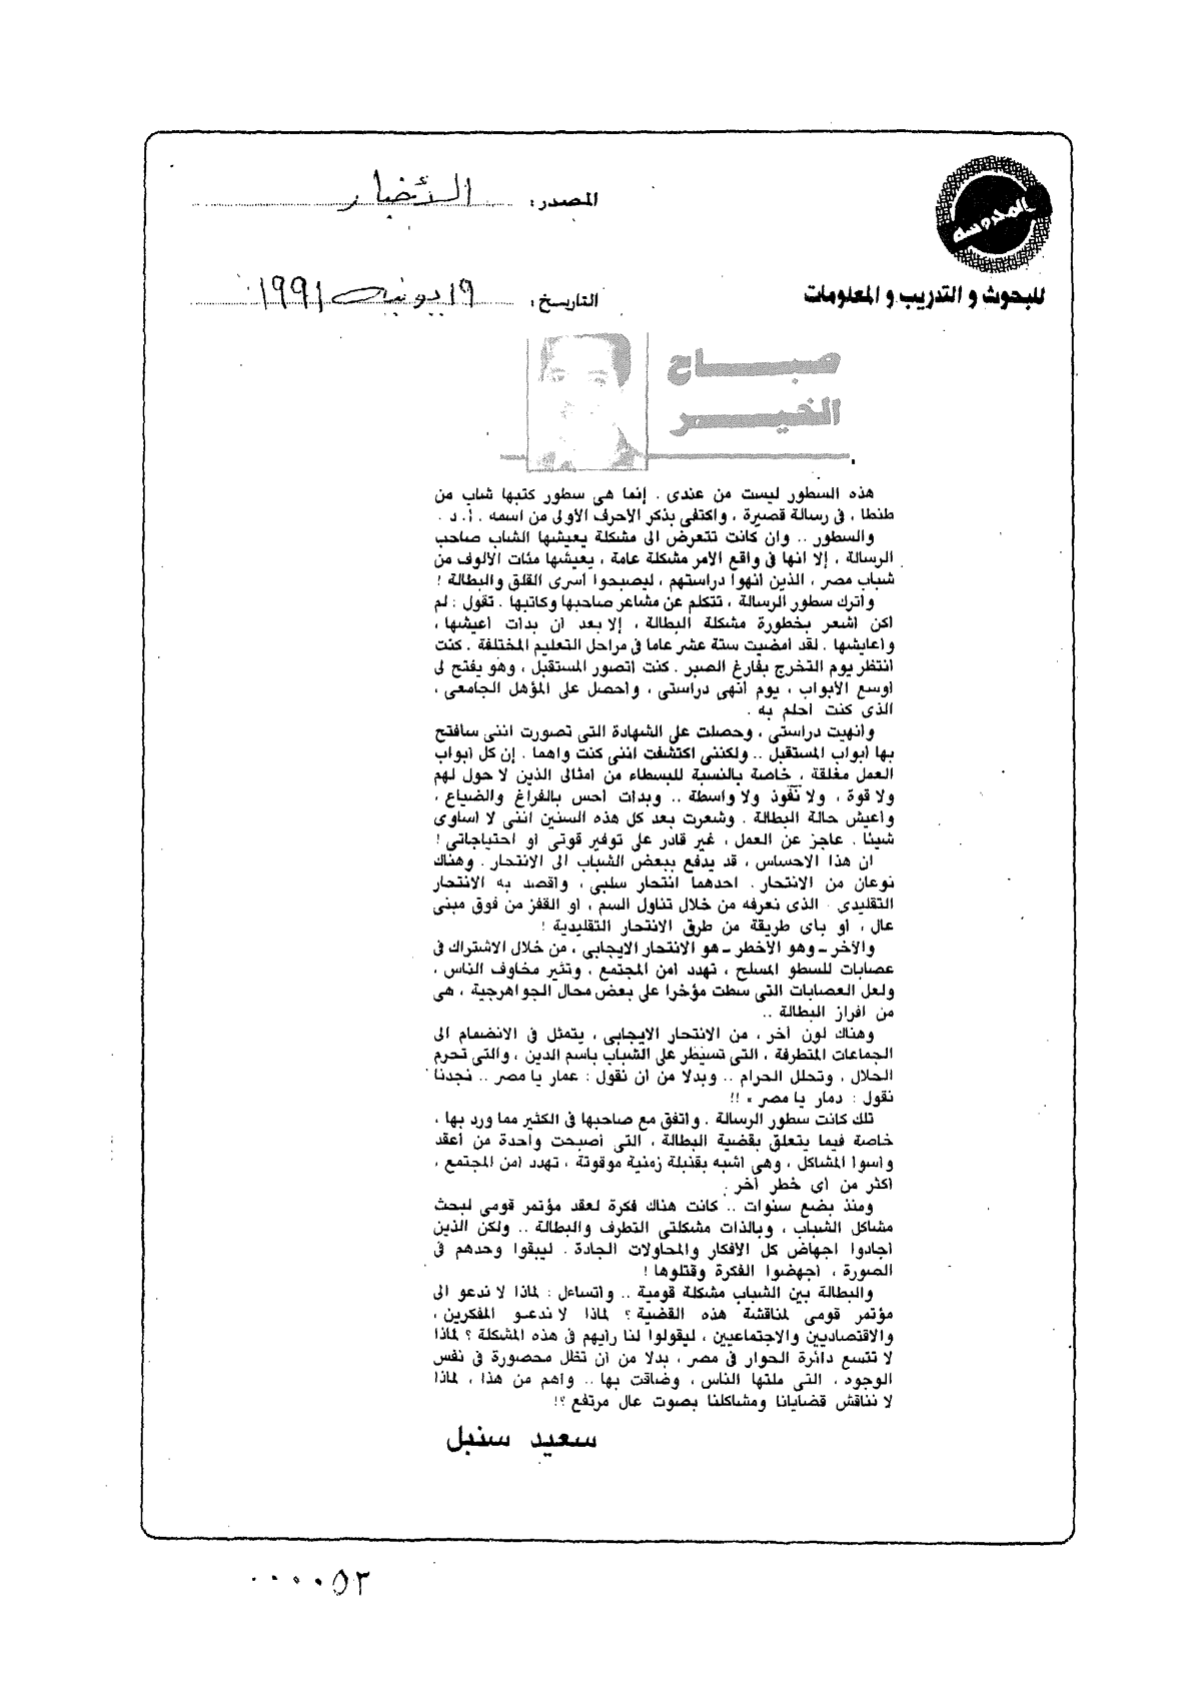 المصدر: الأخبار
المحروسة
التاريخ: ١٩ يونيه ١٩٩١
للبحوث و التدريب و المعلومات
صباح
الخير
هذه السطور ليست من عندى . إنما هى سطور كتبها شاب من
طنطا ، فى رسالة قصيرة ، واكتفى بذكر الاحرف الاولى من اسمه . أ. د .
والسطور .. وان كانت تتعرض الى مشكلة يعيشها الشاب صاحب
الرسالة ، إلا انها فى واقع الامر مشكلة عامة ، يعيشها مئات الألوف من
شباب مصر ، الذين انهوا دراستهم ، ليصبحوا أسرى القلق والبطالة !
واترك سطور الرسالة ، تتكلم عن مشاعر صاحبها وكاتبها . تقول : لم
اكن اشعر بخطورة مشكلة البطالة ، إلا بعد ان بدات اعيشها ،
واعايشها . لقد امضيت ستة عشر عاما فى مراحل التعليم المختلفة . كنت
انتظر يوم التخرج بفارغ الصبر . كنت اتصور المستقبل ، وهو يفتح لى
اوسع الأبواب ، يوم انهى دراستى ، واحصل على المؤهل الجامعى ،
الذى كنت احلم به .
وانهيت دراستى ، وحصلت على الشهادة التى تصورت اننى سافتح
بها أبواب المستقبل .. ولكننى اكتشفت اننى كنت واهما . إن كل أبواب
العمل مغلقة ، خاصة بالنسبة للبسطاء من امثالى الذين لا حول لهم
ولا قوة ، ولا نفوذ ولا واسطة .. وبدات احس بالفراغ والضياع ،
واعيش حالة البطالة . وشعرت بعد كل هذه السنين اننى لا اساوى
شيئا . عاجز عن العمل ، غير قادر على توفير قوتى أو احتياجاتى !
ان هذا الاحساس ، قد يدفع ببعض الشباب الى الانتحار . وهناك
نوعان من الانتحار . احدهما انتحار سلبى ، واقصد به الانتحار
التقليدى الذى نعرفه من خلال تناول السم ، او القفز من فوق مبنى
عال ، أو باى طريقة من طرق الانتحار التقليدية !
والآخر ــ وهو الأخطر ــ هو الانتحار الايجابى ، من خلال الاشتراك فى
عصابات للسطو المسلح ، تهدد امن المجتمع ، وتثير مخاوف الناس ،
ولعل العصابات التى سطت مؤخرا على بعض محال الجواهرجية ، هى
من افراز البطالة ..
وهناك لون آخر ، من الانتحار الايجابى ، يتمثل فى الانضمام الى
الجماعات المتطرفة ، التى تسيطر على الشباب باسم الدين ، والتى تحرم
الحلال ، وتحلل الحرام .. وبدلا من أن نقول : عمار يا مصر .. نجدنا
نقول : دمار يا مصر » !!
تلك كانت سطور الرسالة . واتفق مع صاحبها فى الكثير مما ورد بها ،
خاصة فيما يتعلق بقضية البطالة ، التى أصبحت واحدة من أعقد
وأسوا المشاكل ، وهى اشبه بقنبلة زمنية موقوتة ، تهدد أمن المجتمع ،
اكثر من اى خطر آخر .
ومنذ بضع سنوات .. كانت هناك فكرة لعقد مؤتمر قومى لبحث
مشاكل الشباب ، وبالذات مشكلتى التطرف والبطالة .. ولكن الذين
أجادوا اجهاض كل الافكار والمحاولات الجادة . ليبقوا وحدهم فى
الصورة ، أجهضوا الفكرة وقتلوها !
والبطالة بين الشباب مشكلة قومية .. واتساءل : لماذا لا ندعو الى
مؤتمر قومى لمناقشة هذه القضية ؟ لماذا لا ندعو المفكرين ،
والاقتصاديين والاجتماعيين ، ليقولوا لنا رأيهم فى هذه المشكلة ؟ لماذا
لا تتسع دائرة الحوار فى مصر ، بدلا من أن تظل محصورة فى نفس
الوجوه ، التى ملتها الناس ، وضاقت بها .. وأهم من هذا ، لماذا
لا نناقش قضايانا ومشاكلنا بصوت عال مرتفع ؟!
سعيد سنبل
٠٠٠٠٥٣